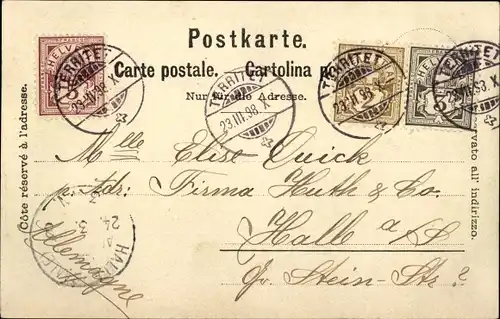 Postkarte.
Carte postale. Cartolina p
Nur für die Adresse.
Côte réservé à l'adresse.
HELVETIA
5
TERRITET
23.III.98.X
TERRITET
23.III.98.
TERRITET
23.III.98.
2
HELVETIA
5
TERRITET
23.III.98.X
Mlle Elise Quick
p. Adr: Firma Huth & Co.
Halle a/S
Gr. Stein-Str?
Allemagne
HALLE
24. 3.
ervato all' indirizzo.